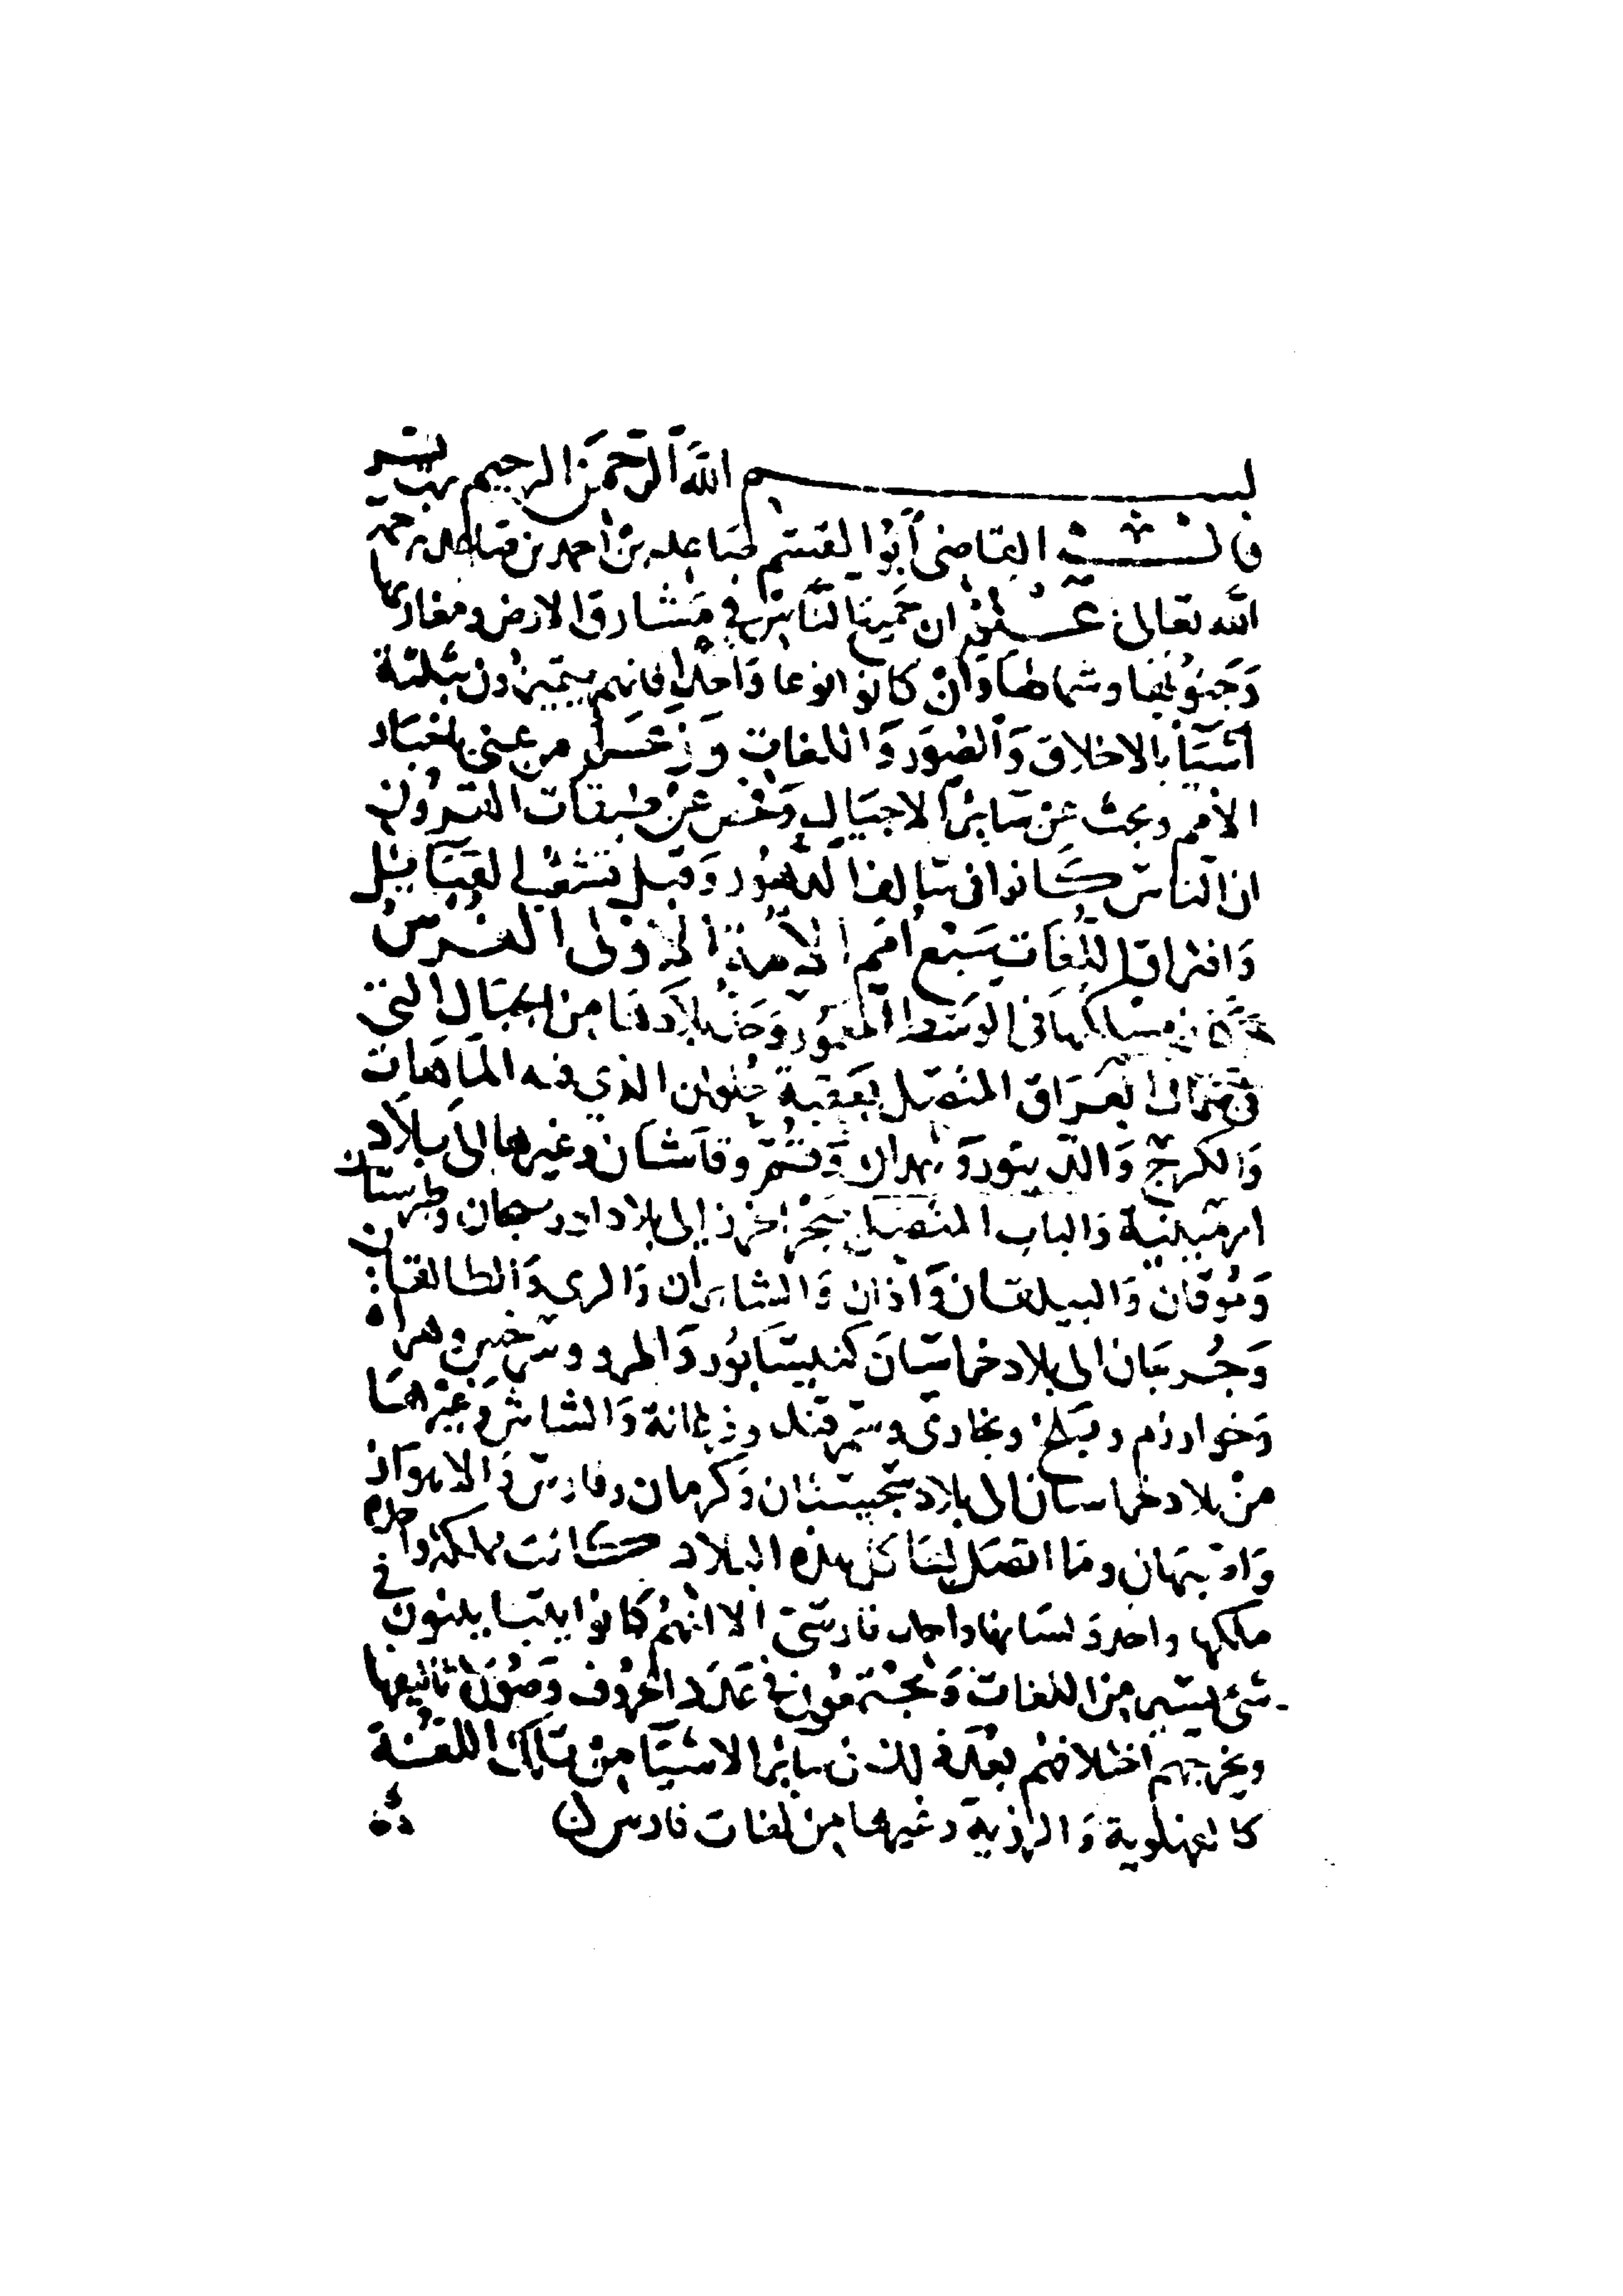 بسم الله الرحمن الرحيم رب يسر
قال الشيخ القاضي أبوا القسم صاعد بن احمد بن صاعد رحمه
الله تعالى اعلم ان جميع الناس في مشارق الارض ومغاربها
وجنوبها وشمالها وان كانوا نوعا واحدا فانهم يتميزون بثلثة
أشيآ بالاخلاق والصور واللغات وزعم من عني باخبار
الأمم وبحث عن سائر الاجيال وفحص عن طبقات القرون
ان الناس كانوا في سالف الدهور وقبل تشعب القبائل
وافتراق اللغات سبع امم الأمة الاولى الفرس
مساكنها في الوسط المعمور وحد بلادها من الجبال التي
في شمال العراق المتصل بعقبة حلوان الذي فيه الماهات
والكرج والدينور وهمدان وقم وقاشان وغيرها الى بلاد
ارمينية والباب المتصل ببحر الخزر إلى بلاد اذربيجان وطبرستان
وموقان والبيلقان واران والشابران والري والطالقان
وجرجان الى بلاد خراسان كنيسابور والمرو وسرخس وهراه
وخوارزم وبلخ وبخارى وسمرقند وفرغانة والشاش وغيرها
من بلاد خراسان الى بلاد سجستان وكرمان وفارس والاهواز
واصبهان وما اتصل بها كل هذه البلاد كانت مملكة واحدة
ملكها واحد ولسانها واحد فارسي الا انهم كانوا يتباينون في
شئ يسير من اللغات ويجتمعون في عدد الحروف وصورة تأليفها
ويخرجهم اختلافهم بعد ذلك في سائر الاشيا من تلك اللغة
كالفهلوية والدرية وغيرها من لغات فارس